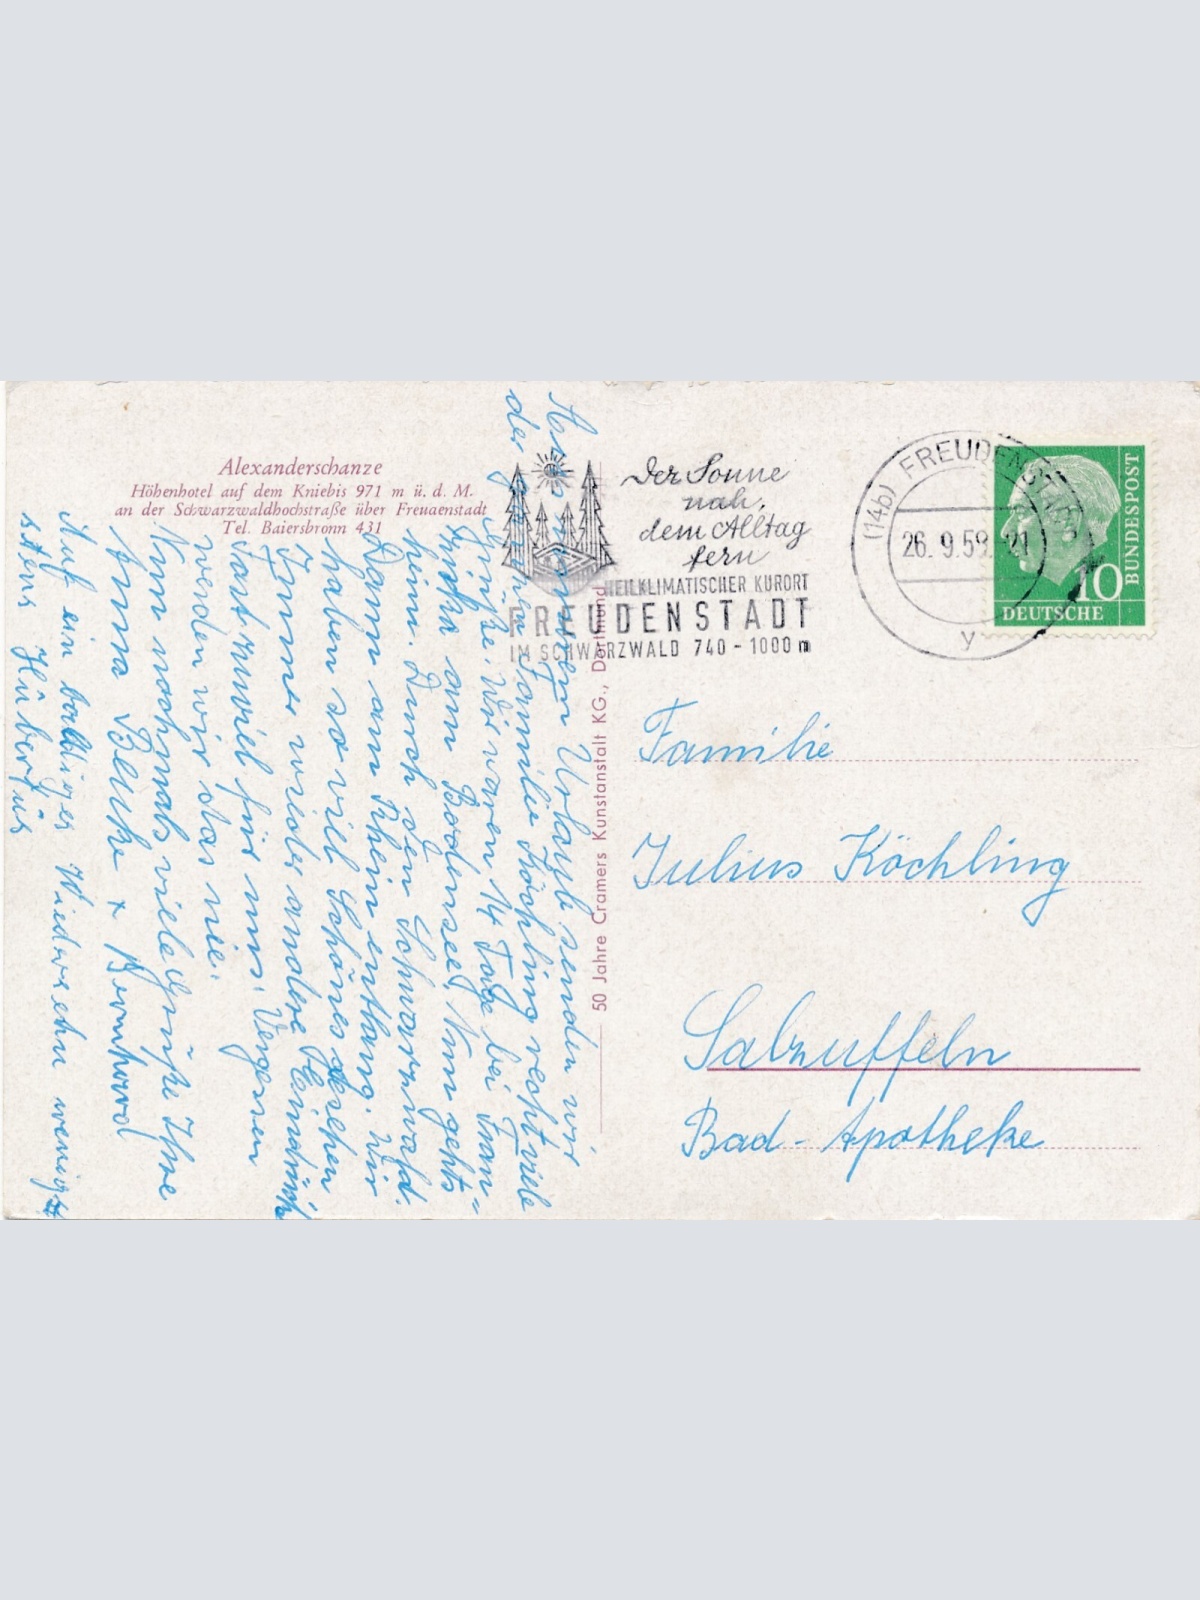 Alexanderschanze
Höhenhotel auf dem Kniebis 971 m ü. d. M.
an der Schwarzwaldhochstraße über Freudenstadt
Tel. Baiersbronn 431
Urlaub senden wir
der Familie Köchling recht viele
Grüße. Wir waren 14 Tage bei
am Bodensee. Nun gehts
heim. Durch den Schwarzwald.
Dann am Rhein entlang. Wir
haben so viel Schönes gesehen
Immer wieder andere Eindrücke
fast zuviel für uns. Vergessen
werden wir das nie.
Nun nochmals viele Grüße Ihre
Anna + Bernhard
Auf ein baldiges Wiedersehn wenig
stens Hubertus
50 Jahre Cramers Kunstanstalt KG., Dortmund
Der Sonne
nah,
dem Alltag
fern
HEILKLIMATISCHER KURORT
FREUDENSTADT
IM SCHWARZWALD 740 - 1000 m
(14b) FREUDENSTADT
26. 9. 59. 21
y
DEUTSCHE
BUNDESPOST
10
Familie
Julius Köchling
Salzuffeln
Bad-Apotheke